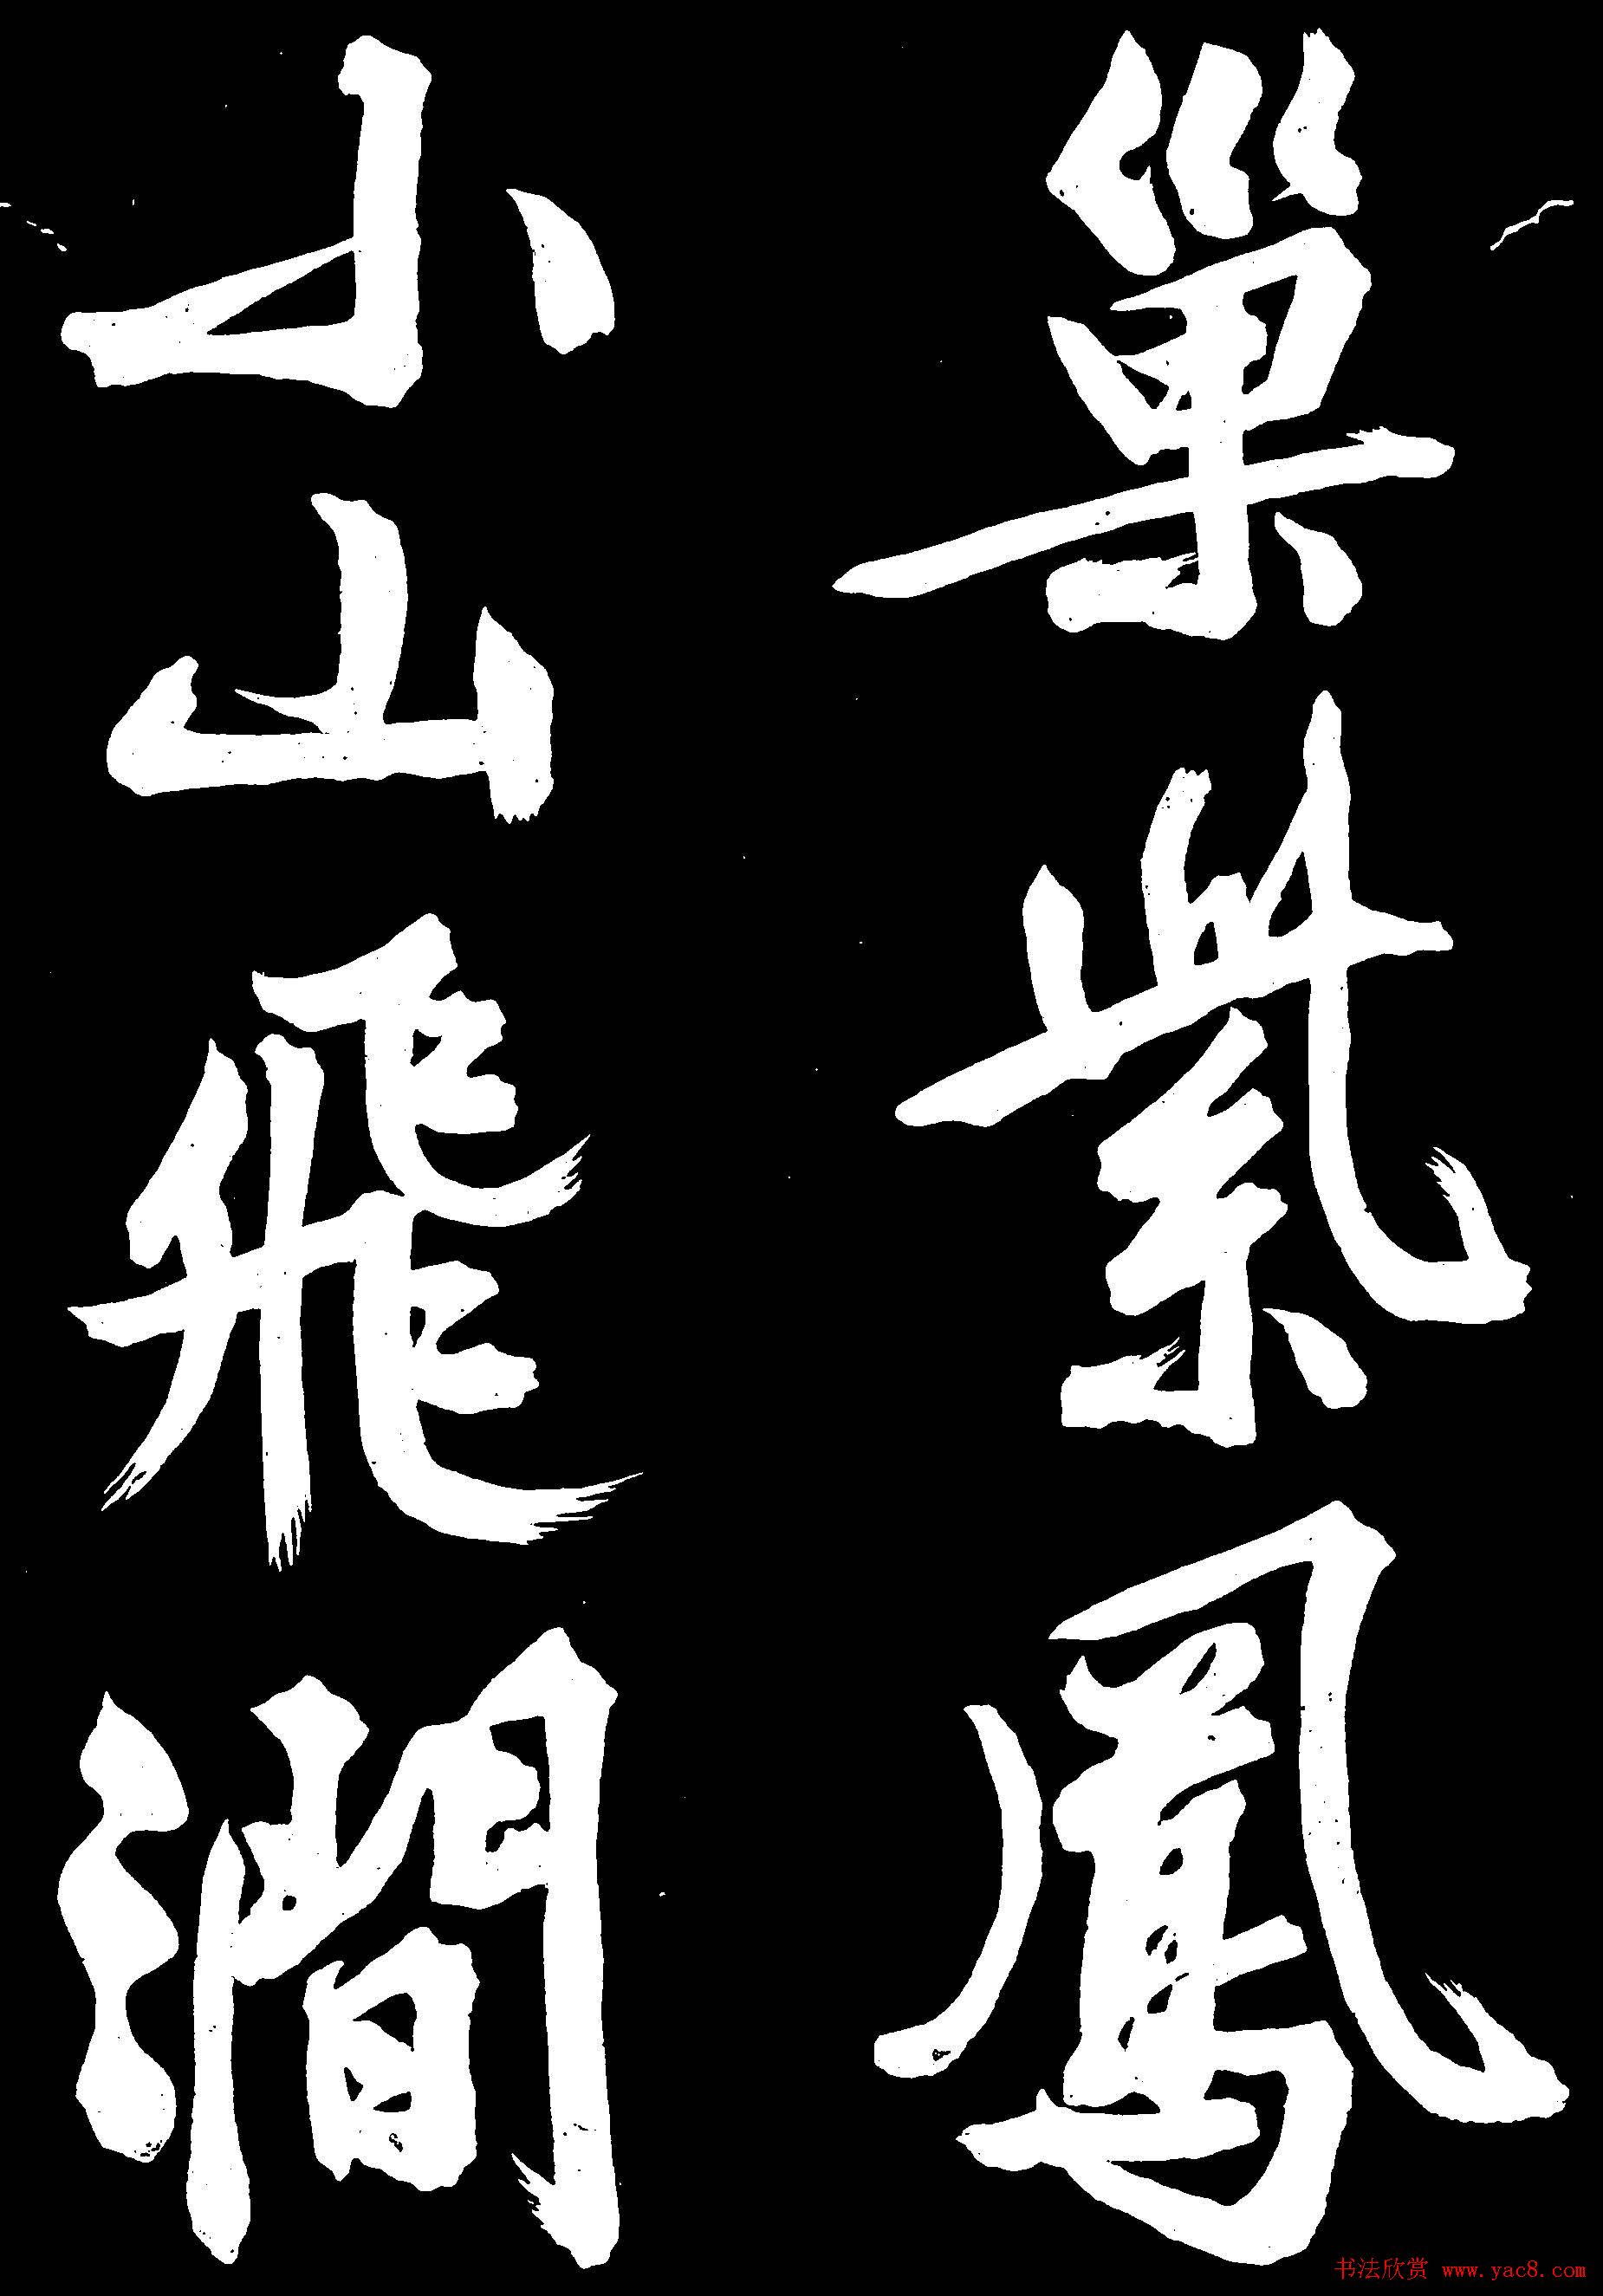 巢紫鳳
小山飛澗
书法欣赏 www.yac8.com